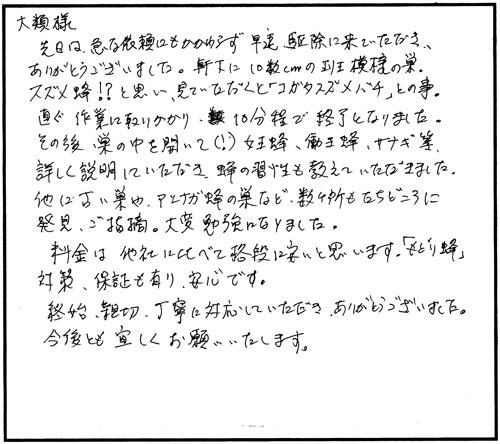 大類様
先日は、急な依頼にもかかわらず 早速 駆除に来ていただき、
ありがとうございました。軒下に10数cmの斑模様の巣。
スズメ蜂!?と思い、見ていただくと「コガタスズメバチ」との事。
直ぐ作業に取りかかり、10分程で終了となりました。
その後、巣の中を開いて(!)女王蜂、働き蜂、サナギ等、
詳しく説明していただき、蜂の習性も教えていただきました。
他に古い巣や、アシナガ蜂の巣など、数ヶ所もたちどころに
発見、ご指摘。大変勉強になりました。
料金は他社に比べて格段に安いと思います。「もどり蜂」
対策、保証も有り、安心です。
終始、親切、丁寧に対応していただき、ありがとうございました。
今後とも宜しくお願いいたします。